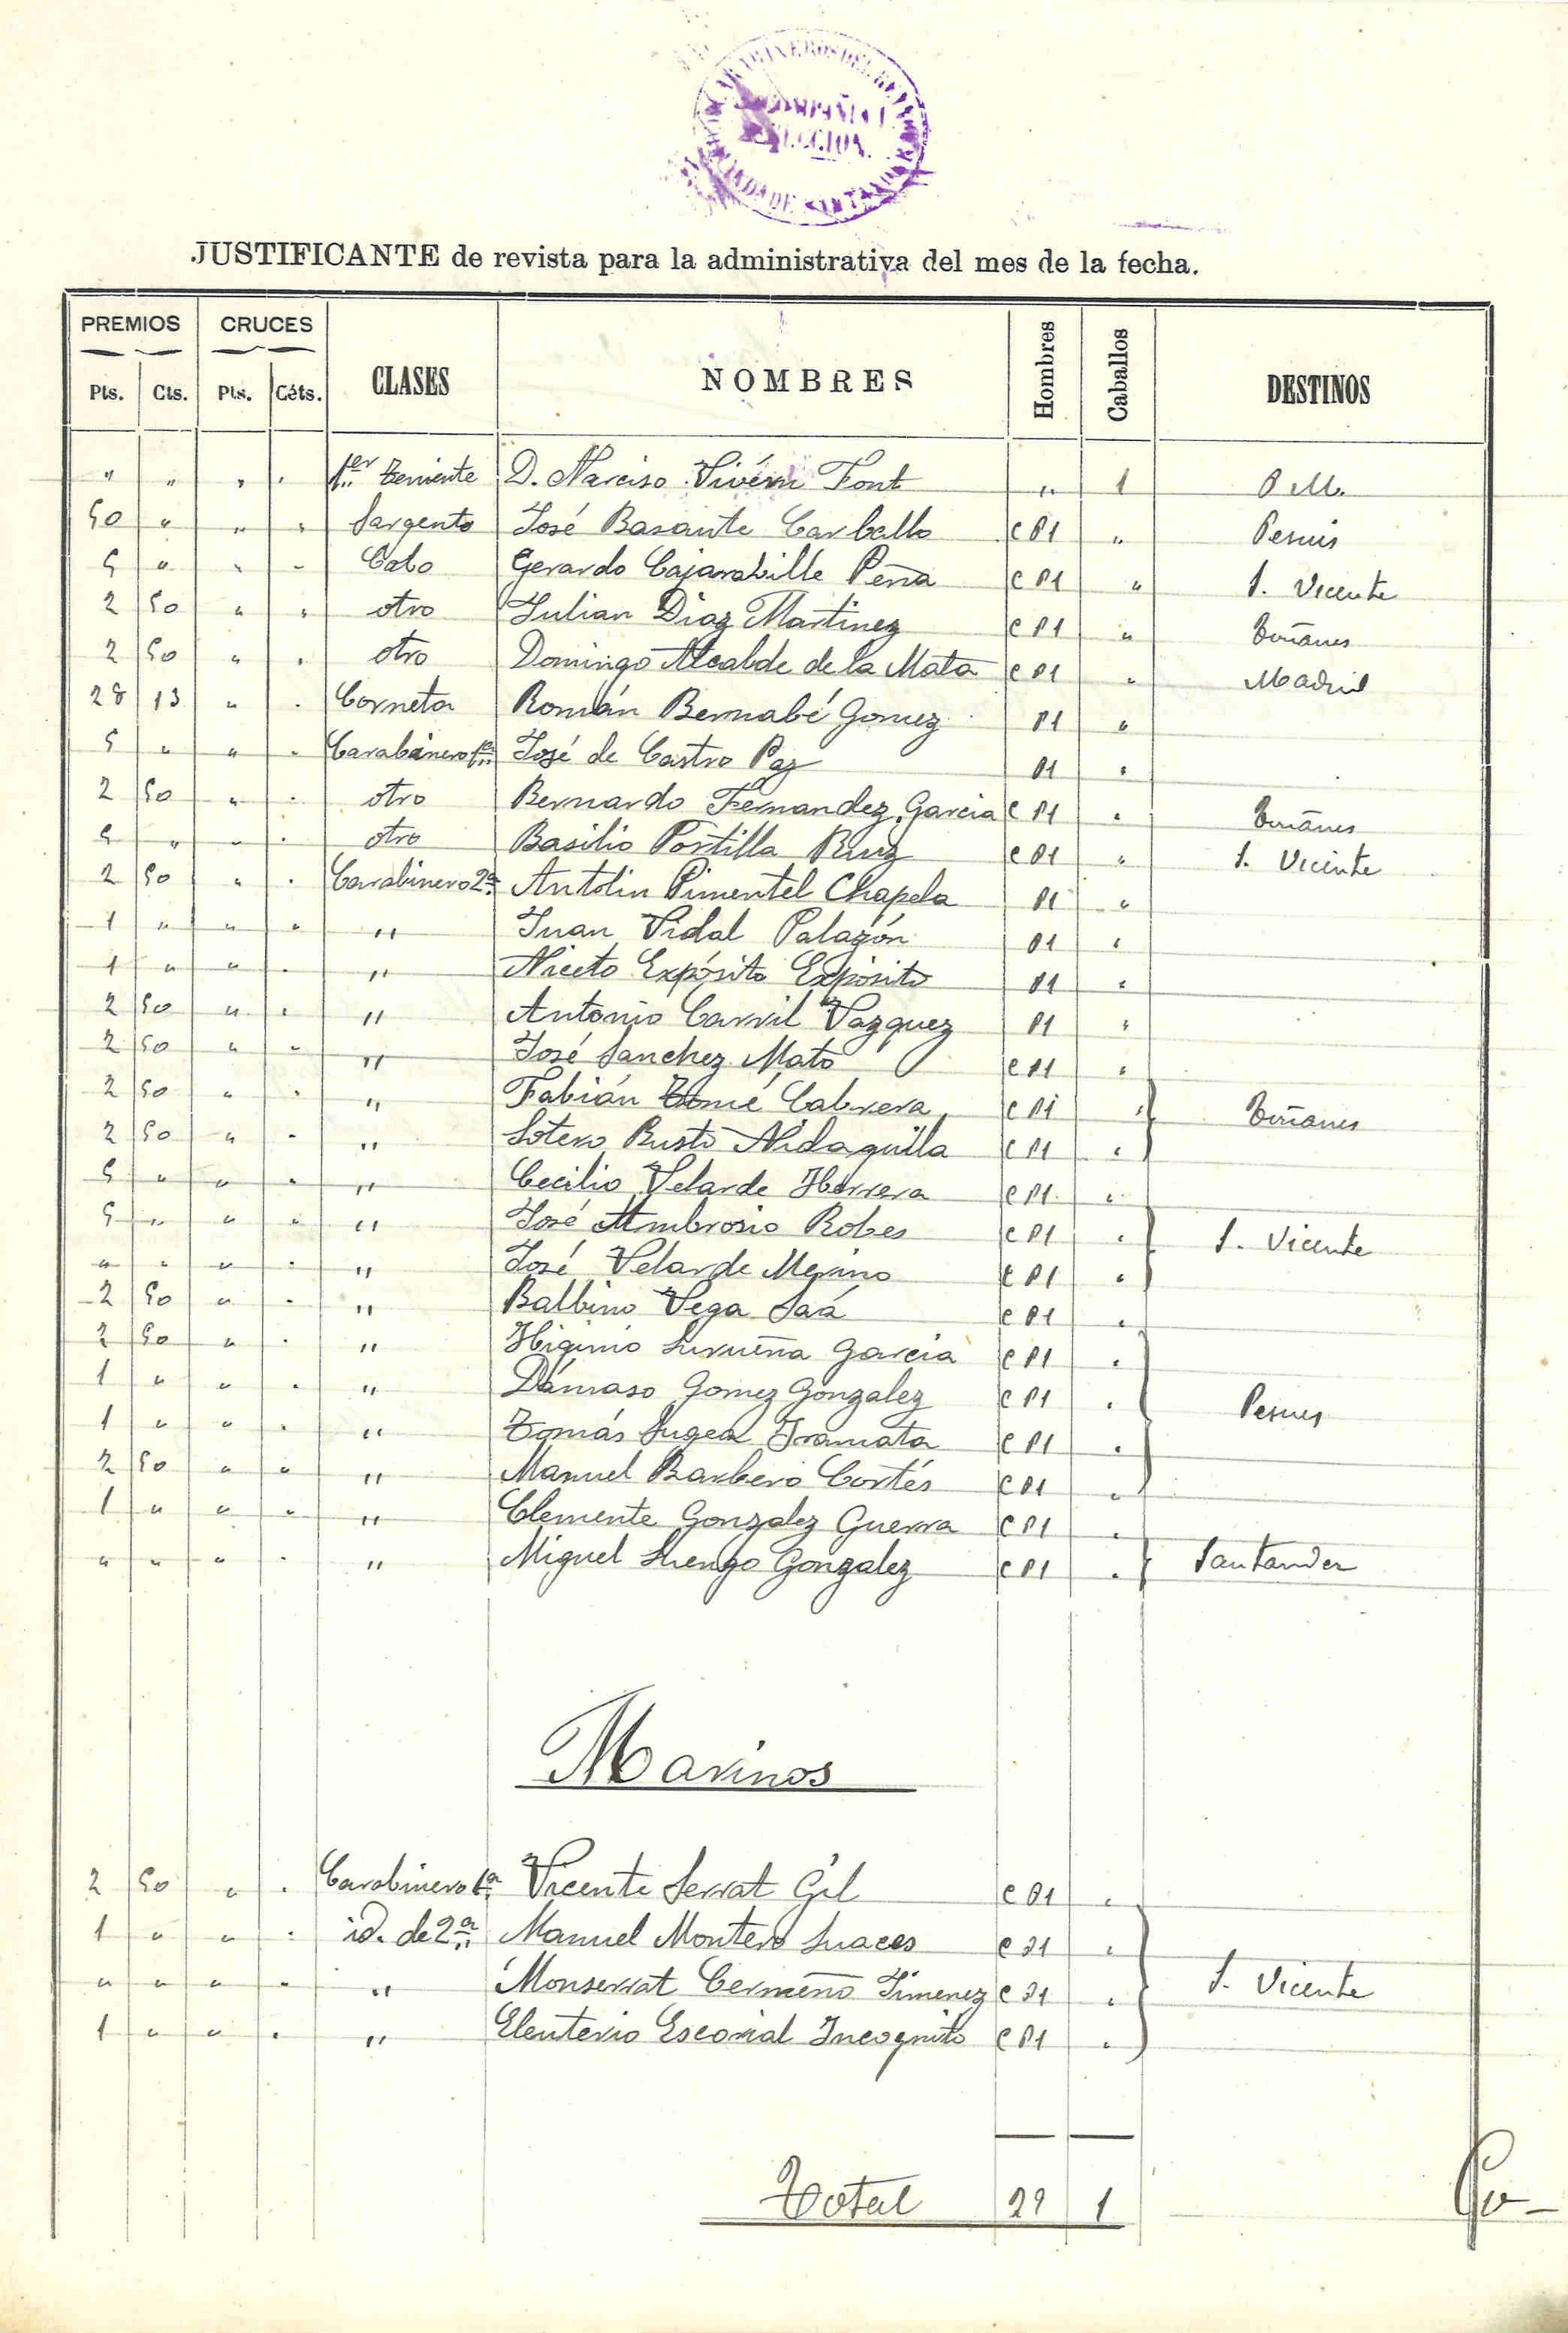 CARABINEROS DEL REINO
COMPAÑIA
SECCION.
COMANDANCIA DE SANTANDER
JUSTIFICANTE de revista para la administrativa del mes de la fecha.
PREMIOS CRUCES CLASES NOMBRES Hombres Caballos DESTINOS
Pts. Cts. Pts. Céts.
" " " " 1er Teniente D. Narciso Vivérn Font " 1 P. M.
50 " " " Sargento José Basante Carballo C P1 " Pesués
5 " " " Cabo Gerardo Cajarabille Peña C P1 " S. Vicente
2 50 " " otro Julian Diaz Martinez C P1 "
2 50 " " otro Domingo Alcalde de la Mata C P1 " Madrid
28 13 " " Corneta Román Bernabé Gomez P1 "
5 " " " Carabinero 1ª José de Castro Paz P1 "
2 50 " " otro Bernardo Fernandez Garcia C P1 "
5 " " " otro Basilio Portilla Ruiz C P1 " S. Vicente
2 50 " " Carabinero 2ª Antolin Pimentel Chapela P1 "
1 " " " " Juan Vidal Palazón P1 "
1 " " " " Niceto Expósito Expósito P1 "
2 50 " " " Antonio Carril Vazquez P1 "
2 50 " " " José Sanchez Mato C P1 "
2 50 " " " Fabián Tomé Cabrera C P1 "
2 50 " " " Sotero Busto Nidaguilla C P1 "
5 " " " " Cecilio Velarde Herrera C P1 "
5 " " " " José Ambrosio Robes C P1 " S. Vicente
" " " " " José Velarde Merino C P1 "
2 50 " " " Balbino Vega Saá C P1 "
2 50 " " " Higinio Lurueña Garcia C P1 "
1 " " " " Dámaso Gomez Gonzalez C P1 " Pesues
1 " " " " Tomás Gramata C P1 "
2 50 " " " Manuel Barbero Cortés C P1 "
1 " " " " Clemente Gonzalez Guerra C P1 "
" " " " " Miguel Luengo Gonzalez C P1 " Santander
Marinos
2 50 " " Carabinero 1ª Vicente Serrat Gil C P1 "
1 " " " id. de 2ª Manuel Montero Luaces C P1 "
" " " " " Monserrat Cermeño Jimenez C P1 " S. Vicente
1 " " " " Eleuterio Escorial Incognito C P1 "
Total 29 1